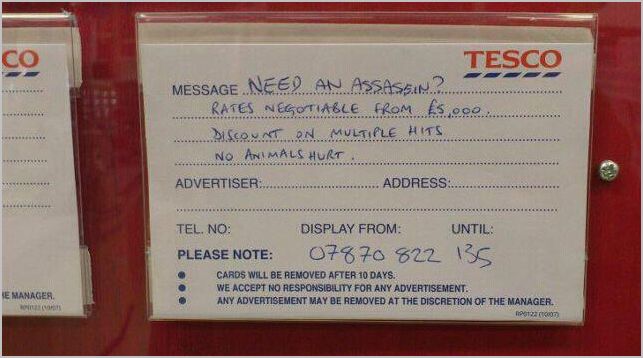 CO
TESCO
MESSAGE NEED AN ASSASSIN?
RATES NEGOTIABLE FROM £5,000.
DISCOUNT ON MULTIPLE HITS
NO ANIMALS HURT.
ADVERTISER: ADDRESS:
TEL. NO: DISPLAY FROM: UNTIL:
PLEASE NOTE: 07870 822 135
CARDS WILL BE REMOVED AFTER 10 DAYS.
WE ACCEPT NO RESPONSIBILITY FOR ANY ADVERTISEMENT.
ANY ADVERTISEMENT MAY BE REMOVED AT THE DISCRETION OF THE MANAGER.
RP0122 (10/07)
HE MANAGER.
RP0122 (10/07)